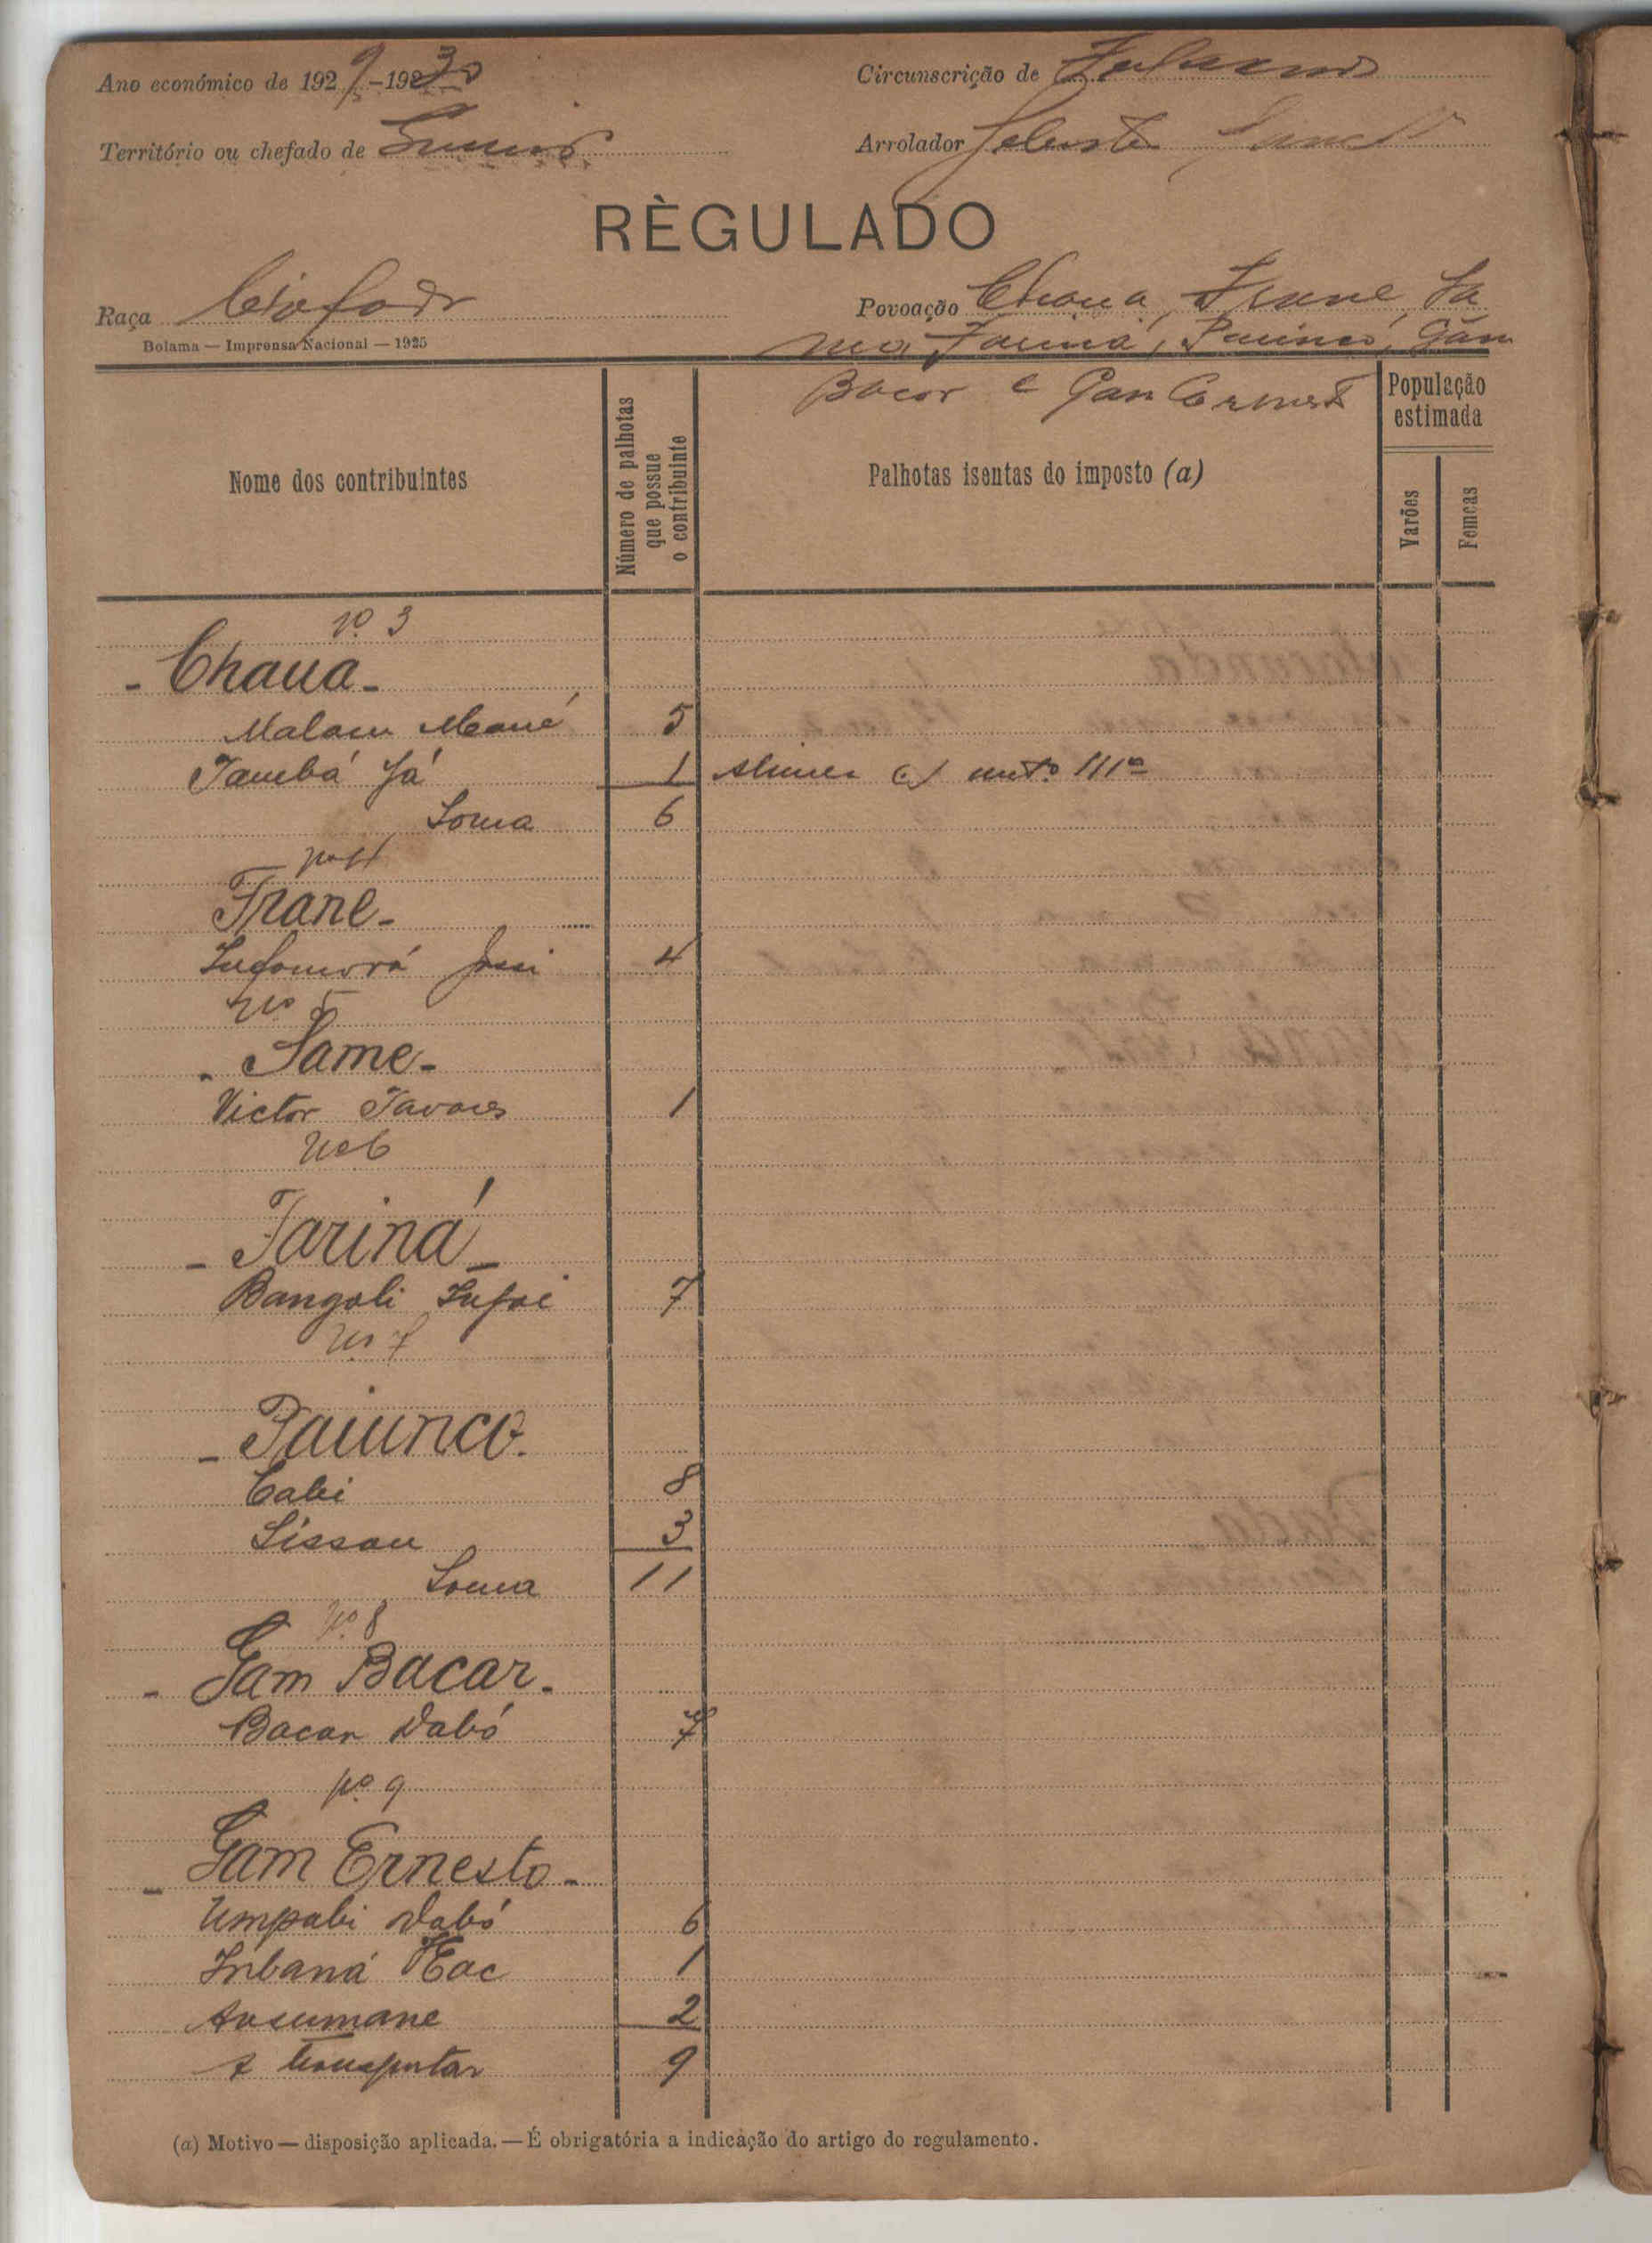 Ano económico de 1929-1930
Circunscrição de
Território ou chefado de
Arrolador
RÈGULADO
Raça
Povoação Chaua, Frane, Sa
me, Tariná, Paiunco, Gam
Bolama — Imprensa Nacional — 1925
Bacar e Gam Ernesto
Nome dos contribuintes
Número de palhotas
que possue
o contribuinte
Palhotas isentas do imposto (a)
População
estimada
Varões
Femeas
nº 3
- Chaua -
Malam Mané 5
Tambá Já 1
Soma 6
nº 4
Frane -
4
nº 5
- Same -
Victor Tavares 1
nº 6
- Tariná -
Bangali 7
nº 7
- Paiunco.
Cabi 8
Lissau 3
Soma 11
nº 8
- Gam Bacar -
Bacar Dabó 7
nº 9
- Gam Ernesto -
Umpabi Dabó 6
Inbaná 1
Ansumane 2
A transportar 9
(a) Motivo — disposição aplicada. — É obrigatória a indicação do artigo do regulamento.